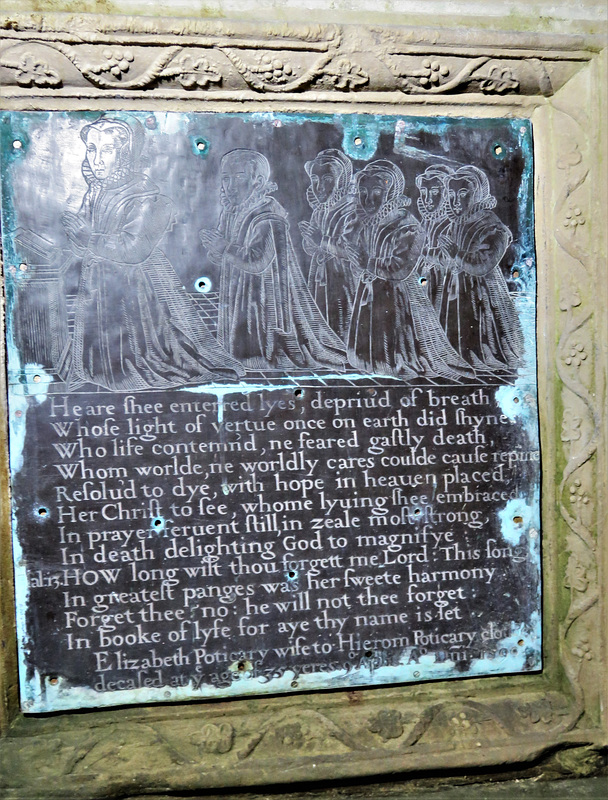 Heare ſhee enterred lyes, depriu'd of breath
Whoſe light of vertue once on earth did ſhyne
Who life contemn'd, ne feared gaſtly death,
Whom worlde, ne worldly cares coulde cauſe repine
Reſolu'd to dye, with hope in heauen placed,
Her Chriſt to ſee, whome lyuing ſhee embraced
In prayer feruent ſtill, in zeale moſt ſtrong,
In death delighting God to magnifye
al:13. HOW long wilt thou forgett me Lord: This ſong
In greateſt panges was her ſweete harmony
Forget thee: no: he will not thee forget:
In booke of lyfe for aye thy name is ſet
Elizabeth Poticary wife to Hierom Poticary
decaſed at yͤ age of